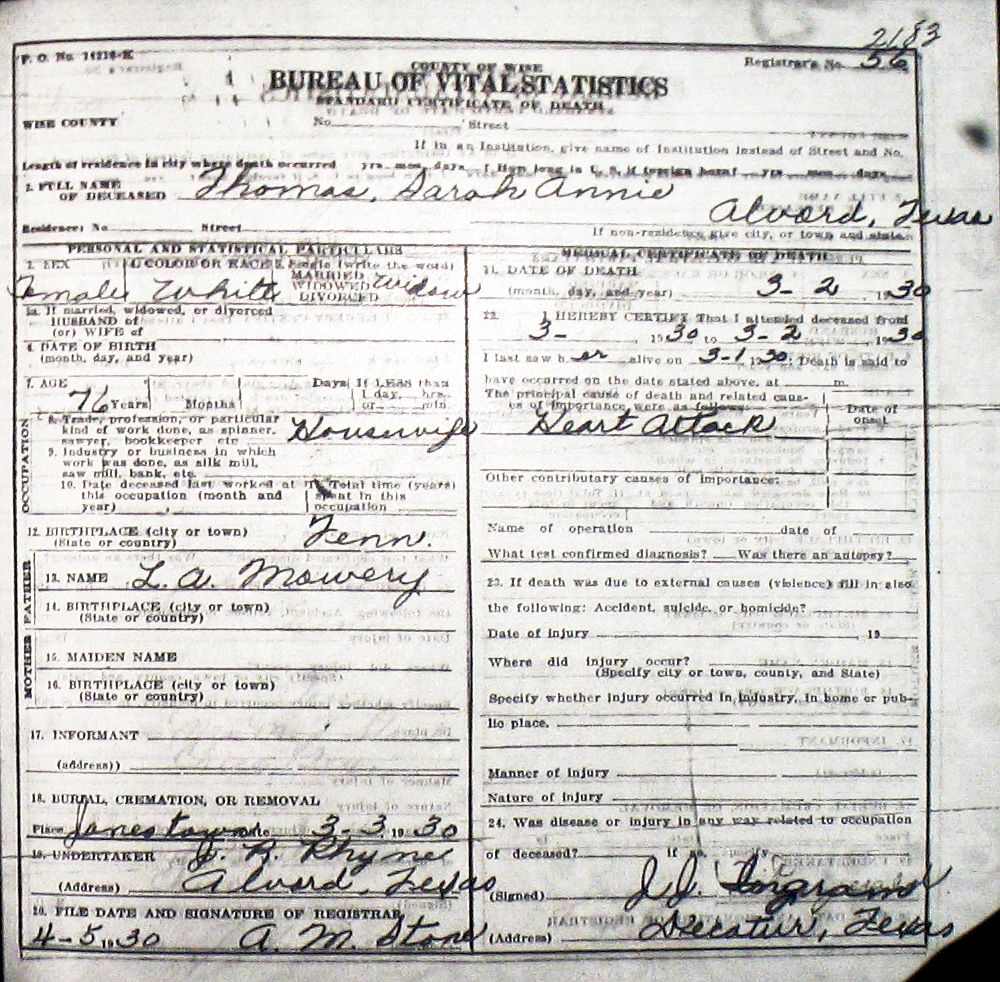 2183
F. O. No. 14216-K
COUNTY OF WISE
Registrar's No. 56
BUREAU OF VITAL STATISTICS
STANDARD CERTIFICATE OF DEATH
WISE COUNTY No. Street
If in an Institution, give name of Institution instead of Street and No.
Length of residence in city where death occurred yrs. mos. days. How long in U. S. if foreign born? yrs. mos. days
2. FULL NAME OF DECEASED Thomas, Sarah Annie
Alvord, Texas
Residence: No. Street If non-residence give city, or town and state.
PERSONAL AND STATISTICAL PARTICULARS
3. SEX 4. COLOR OR RACE Single (write the word)
MARRIED
WIDOWED
DIVORCED
Female White Widow
5a. If married, widowed, or divorced
HUSBAND of
(or) WIFE of
6. DATE OF BIRTH
(month, day, and year)
7. AGE Days If LESS than
1 day, hrs.
76 Years Months or min.
OCCUPATION
8. Trade, profession, or particular
kind of work done, as spinner,
sawyer, bookkeeper etc Housewife
9. Industry or business in which
work was done, as silk mill,
saw mill, bank, etc.
10. Date deceased last worked at 11. Total time (years)
this occupation (month and spent in this
year) occupation
12. BIRTHPLACE (city or town)
(State or country) Tenn.
FATHER
13. NAME L. A. Mowery
14. BIRTHPLACE (city or town)
(State or country)
MOTHER
15. MAIDEN NAME
16. BIRTHPLACE (city or town)
(State or country)
17. INFORMANT
(address))
18. BURIAL, CREMATION, OR REMOVAL
Place Jonestown Date 3-3 1930
19. UNDERTAKER J. R. Rhyne
(Address) Alvord, Texas
20. FILE DATE AND SIGNATURE OF REGISTRAR
4-5 1930 A. M. Stone
MEDICAL CERTIFICATE OF DEATH
21. DATE OF DEATH
(month, day, and year) 3-2, 1930
22. I HEREBY CERTIFY That I attended deceased from
3- , 1930 to 3-2, 1930
I last saw her alive on 3-1 1930: Death is said to
have occurred on the date stated above, at m.
The principal cause of death and related causes
of importance were as follows: Date of onset
Heart Attack
Other contributary causes of importance:
Name of operation date of
What test confirmed diagnosis? Was there an autopsy?
23. If death was due to external causes (violence) fill in also
the following: Accident, suicide, or homicide?
Date of injury , 19
Where did injury occur?
(Specify city or town, county, and State)
Specify whether injury occurred in industry, in home or pub-
lic place.
Manner of injury
Nature of injury
24. Was disease or injury in any way related to occupation
of deceased? if so, specify
(Signed) J. J. Ingram
(Address) Decatur, Texas